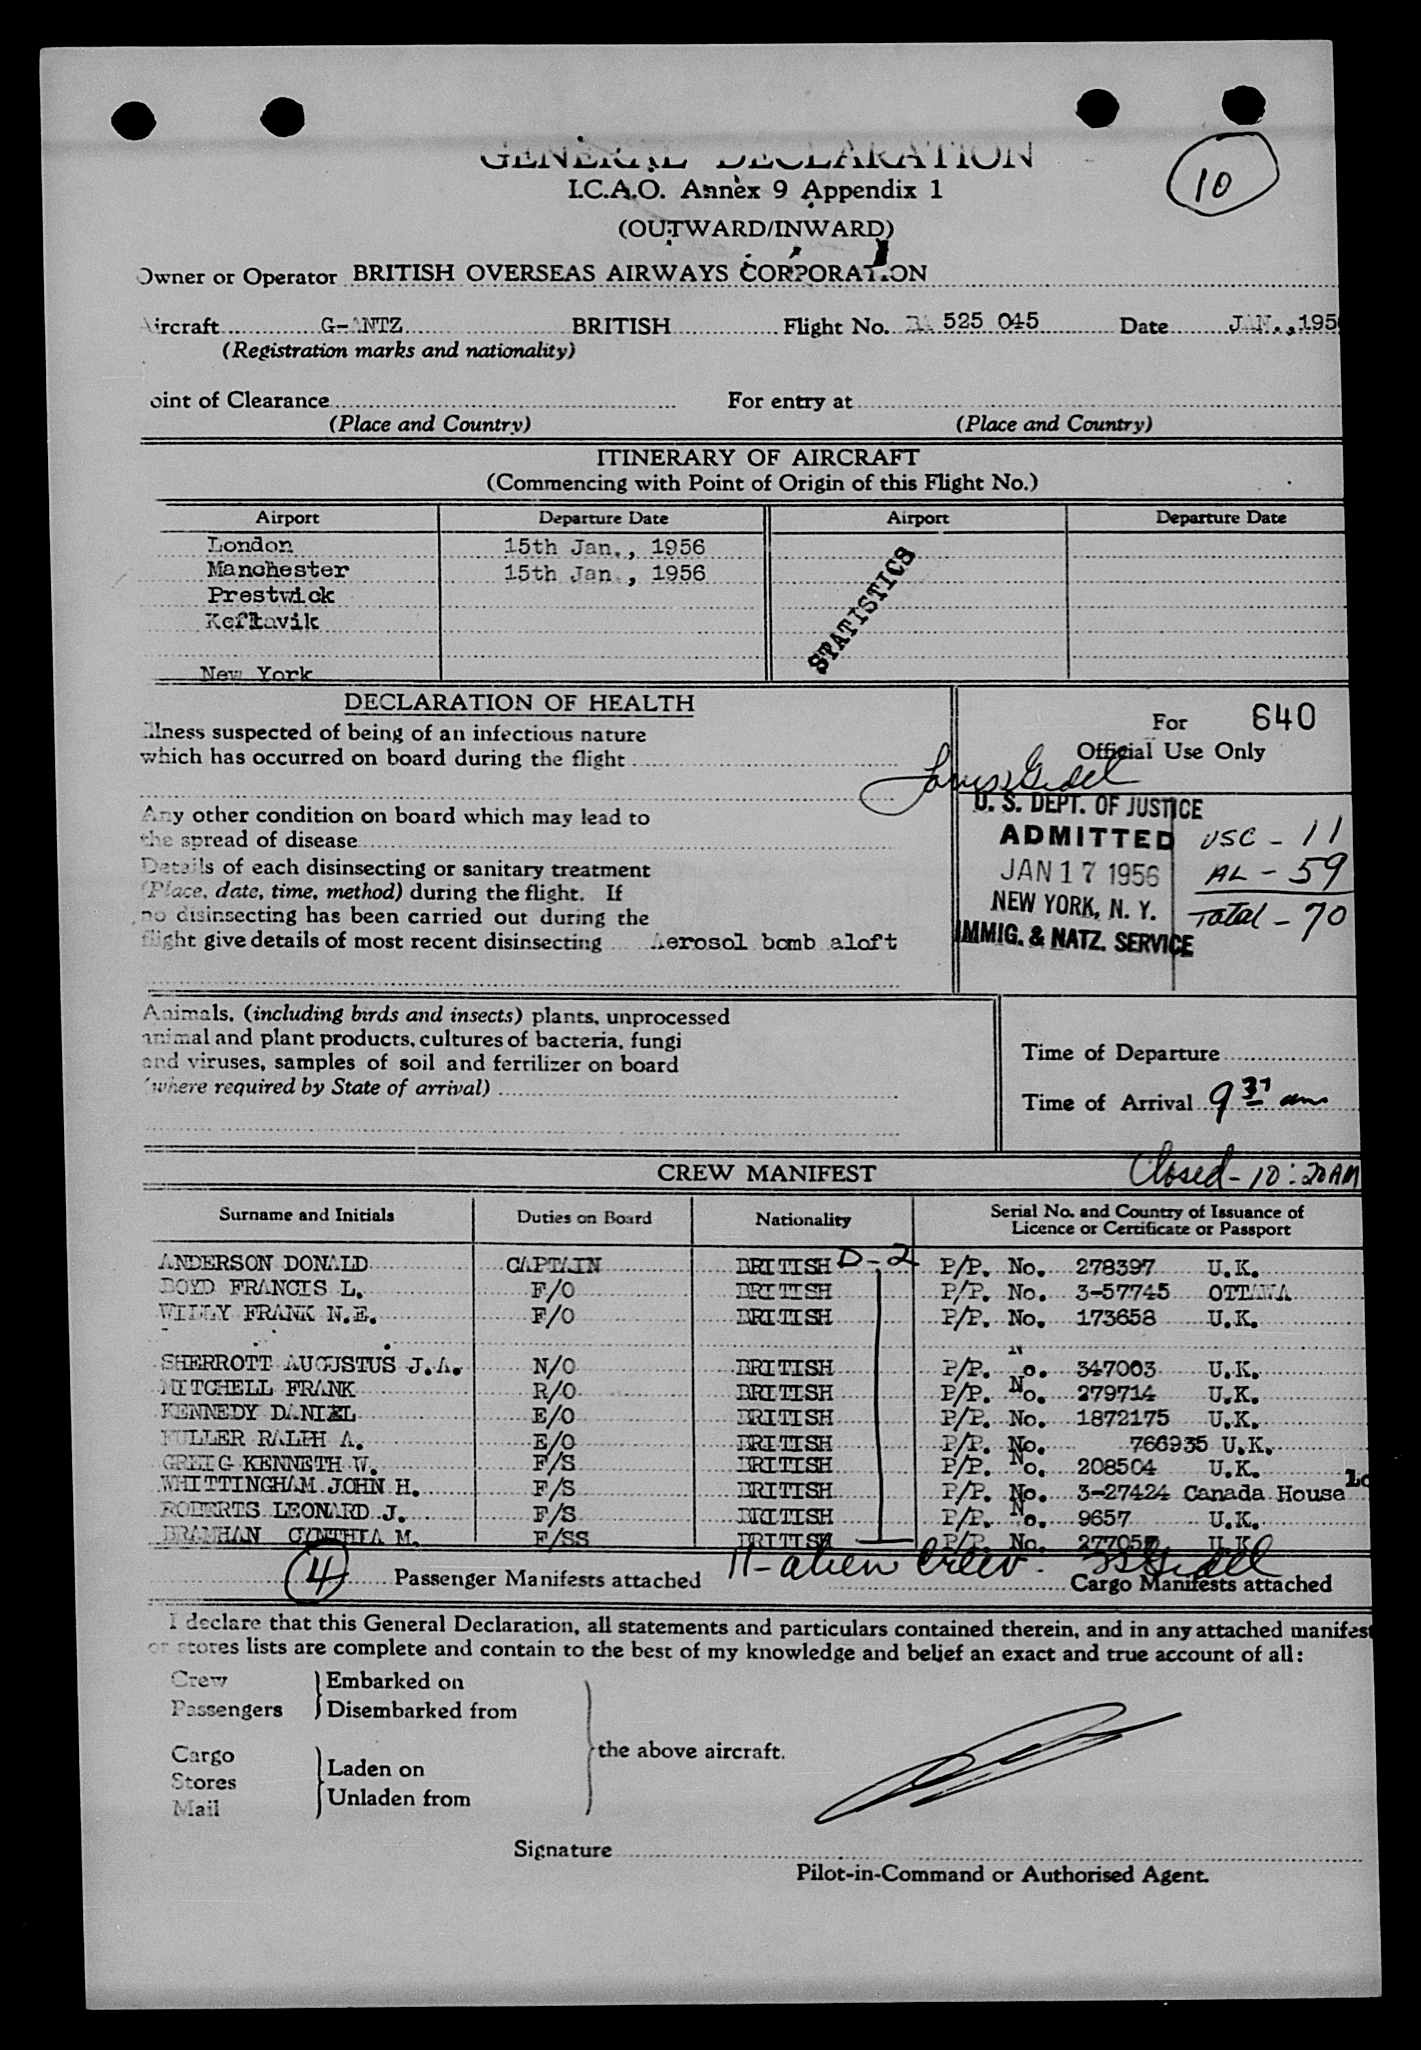 GENERAL DECLARATION
I.C.A.O. Annex 9 Appendix 1
10
(OUTWARD/INWARD)
Owner or Operator BRITISH OVERSEAS AIRWAYS CORPORATION
Aircraft G-ANTZ BRITISH Flight No. BA 525 045 Date JAN., 195
(Registration marks and nationality)
oint of Clearance For entry at
(Place and Country) (Place and Country)
ITINERARY OF AIRCRAFT
(Commencing with Point of Origin of this Flight No.)
Airport Departure Date Airport Departure Date
London 15th Jan., 1956
Manchester 15th Jan., 1956
Prestwick
Keflavik
New York
STATISTICS
DECLARATION OF HEALTH
Illness suspected of being of an infectious nature
which has occurred on board during the flight
Any other condition on board which may lead to
the spread of disease
Details of each disinsecting or sanitary treatment
(Place, date, time, method) during the flight. If
no disinsecting has been carried out during the
flight give details of most recent disinsecting Aerosol bomb aloft
For 640
Official Use Only
U. S. DEPT. OF JUSTICE
ADMITTED
JAN 17 1956
NEW YORK, N. Y.
IMMIG. & NATZ. SERVICE
USC - 11
AL - 59
Total - 70
Animals, (including birds and insects) plants, unprocessed
animal and plant products, cultures of bacteria, fungi
and viruses, samples of soil and fertilizer on board
(where required by State of arrival)
Time of Departure
Time of Arrival 9 37 am
Closed - 10:20 AM
CREW MANIFEST
Surname and Initials Duties on Board Nationality Serial No. and Country of Issuance of
Licence or Certificate or Passport
ANDERSON DONALD CAPTAIN BRITISH D-2 P/P. No. 278397 U.K.
BOYD FRANCIS L. F/O BRITISH P/P. No. 3-57745 OTTAWA
WILLY FRANK N.E. F/O BRITISH P/P. No. 173658 U.K.
SHERROTT AUGUSTUS J.A. N/O BRITISH P/P. No. 347003 U.K.
MITCHELL FRANK R/O BRITISH P/P. No. 279714 U.K.
KENNEDY DANIEL E/O BRITISH P/P. No. 1872175 U.K.
FULLER RALPH A. E/O BRITISH P/P. No. 766935 U.K.
GREIG KENNETH W. F/S BRITISH P/P. No. 208504 U.K.
WHITTINGHAM JOHN H. F/S BRITISH P/P. No. 3-27424 Canada House Lo
ROBERTS LEONARD J. F/S BRITISH P/P. No. 9657 U.K.
BRAMHAN CYNTHIA M. F/SS BRITISH P/P. No. 277057 U.K.
4 Passenger Manifests attached 11-alien crew. Cargo Manifests attached
I declare that this General Declaration, all statements and particulars contained therein, and in any attached manifest
or stores lists are complete and contain to the best of my knowledge and belief an exact and true account of all:
Crew Embarked on
Passengers Disembarked from
the above aircraft.
Cargo Laden on
Stores
Mail Unladen from
Signature
Pilot-in-Command or Authorised Agent.